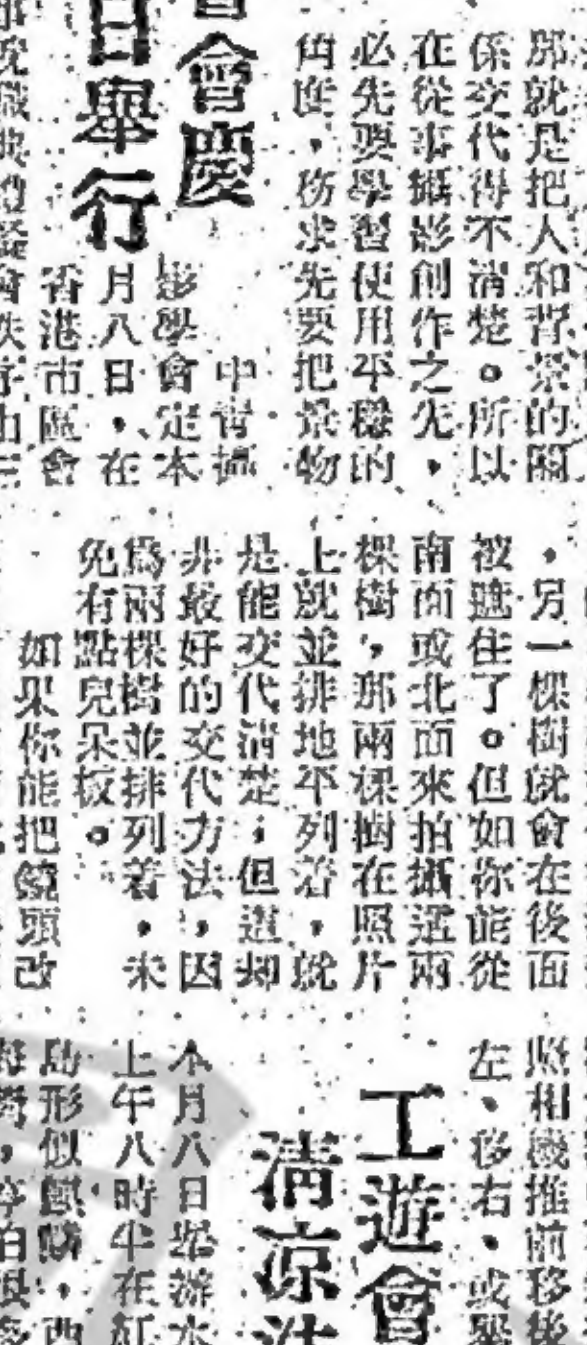 那就是把人和背景的關
係交代得不清楚。所以
在從事攝影創作之先，
必先要學習使用平穩的
角度，務求先要把景物
會慶
日舉行
中青攝
影學會定本
月八日，在
香港市區會
，另一棵樹就會在後面
被遮住了。但如你能從
南面或北面來拍攝這兩
棵樹，那兩棵樹在照片
上就並排地平列着，就
是能交代清楚；但這却
非最好的交代方法，因
爲兩棵樹並排列着，未
免有點兒呆板。
如果你能把鏡頭改
照相機推前移後
左、移右、或
工遊會
清凉
本月八日 游水
上午八時半在紅
島形似麒麟，西